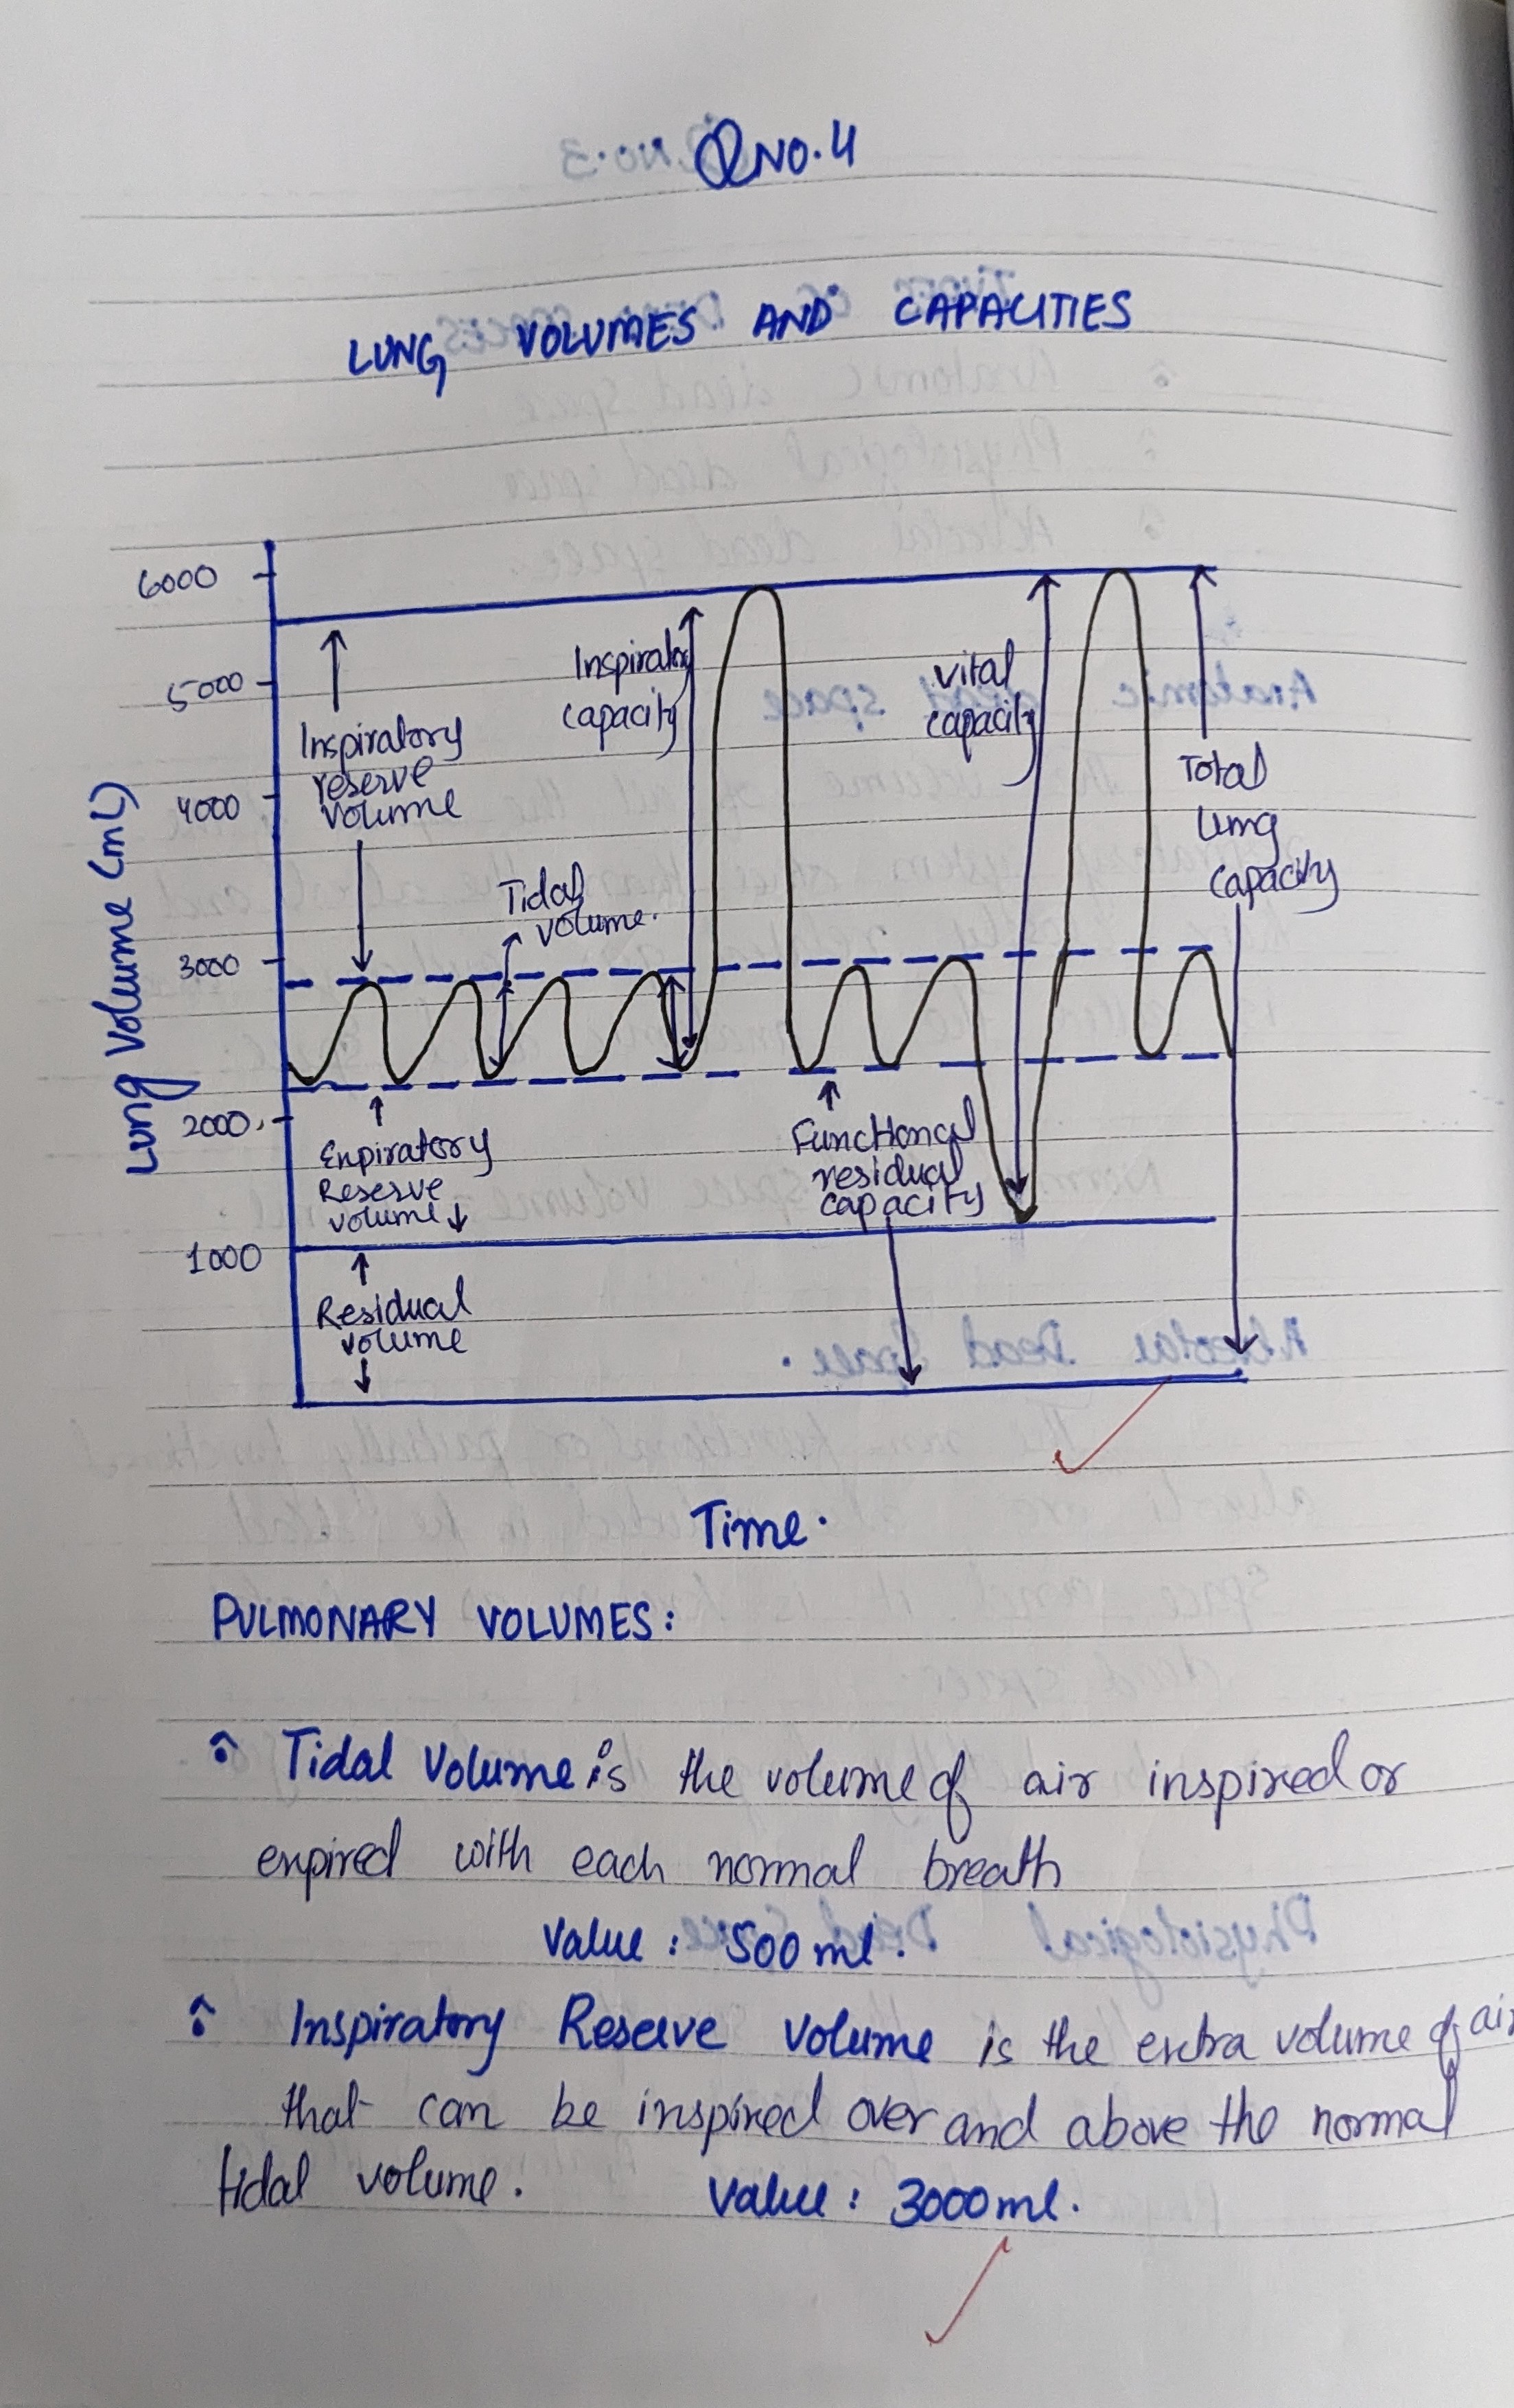 Q NO.4
LUNG VOLUMES AND CAPACITIES
Lung Volume (mL)
6000
5000
4000
3000
2000
1000
Inspiratory
reserve
volume
Tidal
volume.
Inspiratory
capacity
Vital
capacity
Total
lung
capacity
Expiratory
Reserve
volume
Functional
residual
capacity
Residual
volume
Time.
PULMONARY VOLUMES:
Tidal Volume is the volume of air inspired or
expired with each normal breath
Value: 500 ml.
Inspiratory Reserve Volume is the extra volume of air
that can be inspired over and above the normal
tidal volume. Value: 3000 ml.